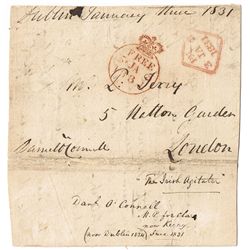 Dublin January three 1831
FREE
JA
1831
Mr L. Terry
5 Hatton Garden
London
Daniel O'Connell
"The Irish Agitator"
Danl O'Connell
M.P. for Clare
now Kerry
(now Dublin 1834) June 1831